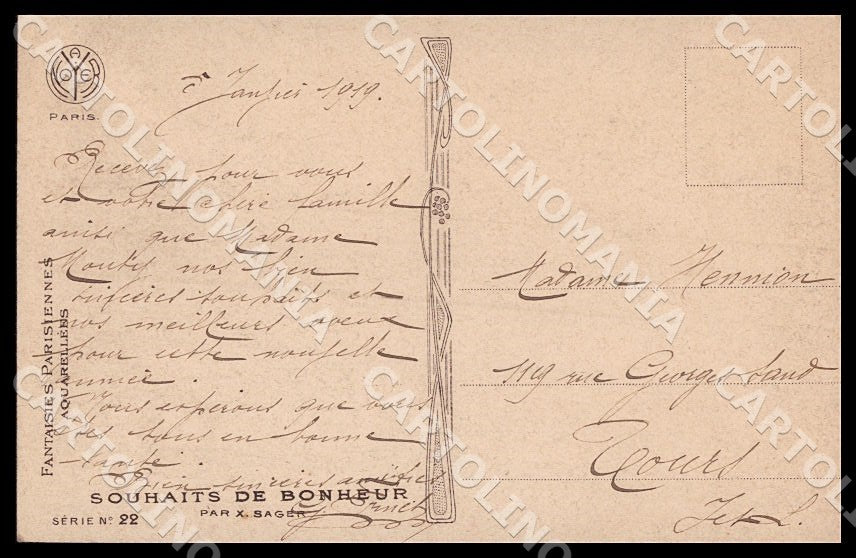 AYOE
PARIS.
Janvier 1919.
Recevez pour vous
et votre chère famille
ainsi que Madame
nos bien
sincères souhaits et
nos meilleurs voeux
pour cette nouvelle
année.
Nous espérons que vous
êtes tous en bonne
santé.
Bien sincères amitiés
FANTAISIES PARISIENNES
AQUARELLÉES
SOUHAITS DE BONHEUR
PAR X. SAGER
SÉRIE No 22
Madame Hennion
119 rue Georges Sand
Tours
Jet L.
CARTOLINOMANIA
CARTOLINOMANIA
CARTOLINOMANIA